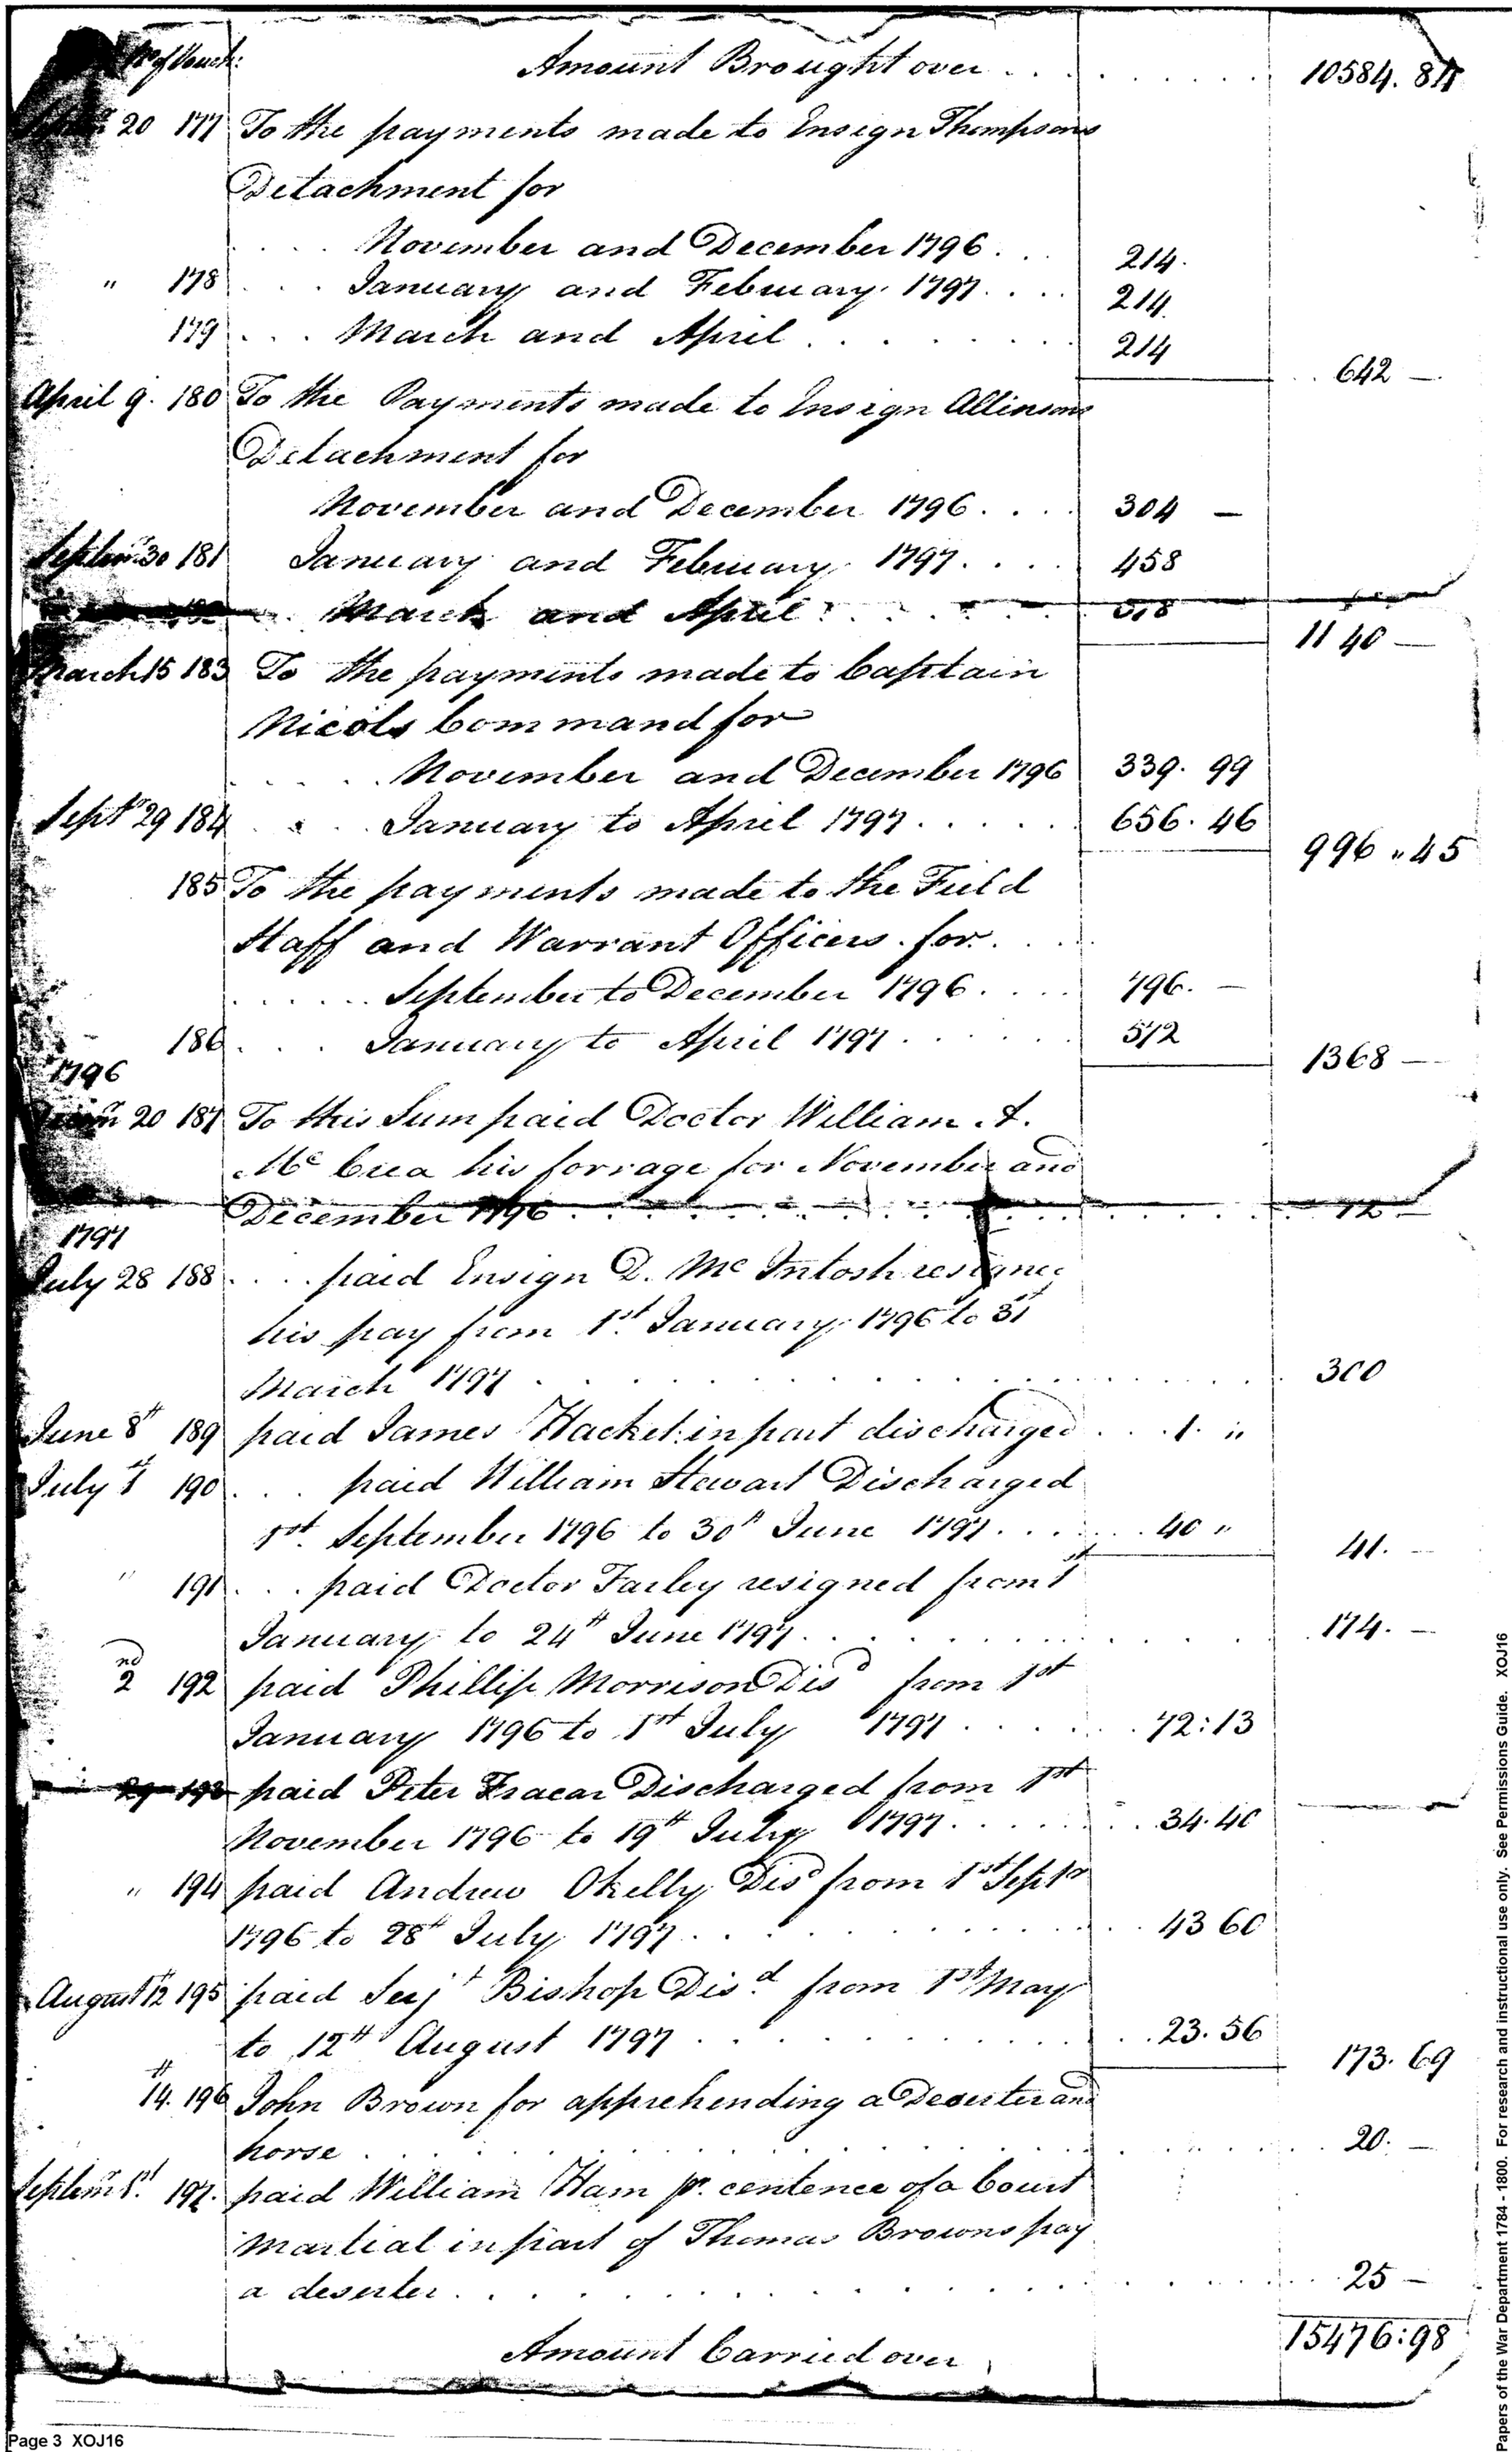 No of Vouch:
Amount Brought over . . . 10584. 84
20 177 To the payments made to Ensign Thompsons
Detachment for
November and December 1796 . . 214.
" 178 . . . January and February 1797 . . . . 214.
179 . . . March and April . . . . . . 214
642 —
April 9. 180 To the Payments made to Ensign Allinsons
Detachment for
November and December 1796 . . . . 304 —
Septemr 30 181 January and February 1797 . . . . 458
182 . . March and April . . . . . . 378
1140 —
March 15 183 To the payments made to Captain
Nicols Command for
. . . . November and December 1796 339. 99
Septr 29 184 . . . January to April 1797 . . . . . 656. 46
996 " 45
185 To the payments made to the Field
Staff and Warrant Officers for . . .
. . . . . . September to December 1796 . . . . 796. —
186 . . . January to April 1797 . . . . . . 572
1368 —
1796
20 187 To this Sum paid Doctor William A.
Mc Crea his forrage for November and
December 1796 . . . . . . . . . 12 —
1797
July 28 188 . . . . paid Ensign D. Mc Intosh resigned
his pay from 1st. January 1796 to 31st
March 1797 . . . . . . . . . 300
June 8th 189 paid James Hacket in part discharged . . . 1. "
July 1st 190 . . . paid William Stewart Discharged
1st. September 1796 to 30th June 1797 . . . . . 40 "
41. —
" 191 . . . paid Doctor Farley resigned from 1st
January to 24th June 1797 . . . . . . . . 174. —
2nd 192 paid Phillip Morrison Disd from 1st
January 1796 to 1st July 1797 . . . . . 72:13
29 193 paid Peter Fracar Discharged from 1st
November 1796 to 19th July 1797 . . . . . . 34.40
" 194 paid Andrew Okelly Disd from 1st Septr
1796 to 28th July 1797 . . . . . . . . 43 60
August 12th 195 paid Serjt Bishop Dis.d from 1st May
to 12th August 1797 . . . . . . . . 23. 56
173. 69
14th. 196 John Brown for apprehending a Deserter and
horse . . . . . . . . . . . 20. —
Septemr 1st. 197. paid William Ham pr. centence of a Court
Martial in part of Thomas Browns pay
a deserter . . . . . . . . . . . 25 —
Amount Carried over 15476:98
Page 3 XOJ16
Papers of the War Department 1784 - 1800. For research and instructional use only. See Permissions Guide. XOJ16